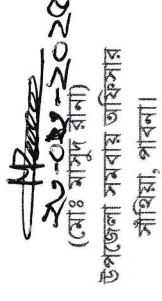 ২৩-০৯-২০২৫
(মোঃ মাসুদ রানা)
উপজেলা সমবায় অফিসার
সাঁথিয়া, পাবনা।